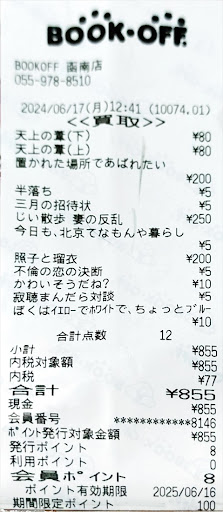 BOOK・OFF
BOOKOFF 函南店
055-978-8510
2024/06/17(月)12:41 (10074.01)
<<買取>>
天上の葦(下) ¥80
天上の葦(上) ¥80
置かれた場所であばれたい
¥200
半落ち ¥5
三月の招待状 ¥5
じい散歩 妻の反乱 ¥250
今日も、北京てなもんや暮らし
¥5
照子と瑠衣 ¥200
不倫の恋の決断 ¥5
かわいそうだね? ¥10
寂聴まんだら対談 ¥5
ぼくはイエローでホワイトで、ちょっとブルー
¥10
合計点数 12
小計 ¥855
内税対象額 ¥855
内税 ¥77
合計 ¥855
現金 ¥855
会員番号 ************8146
ポイント発行対象金額 ¥855
発行ポイント 8
利用ポイント 0
会員ポイント 8
ポイント有効期限 2025/06/16
期間限定ポイント 100